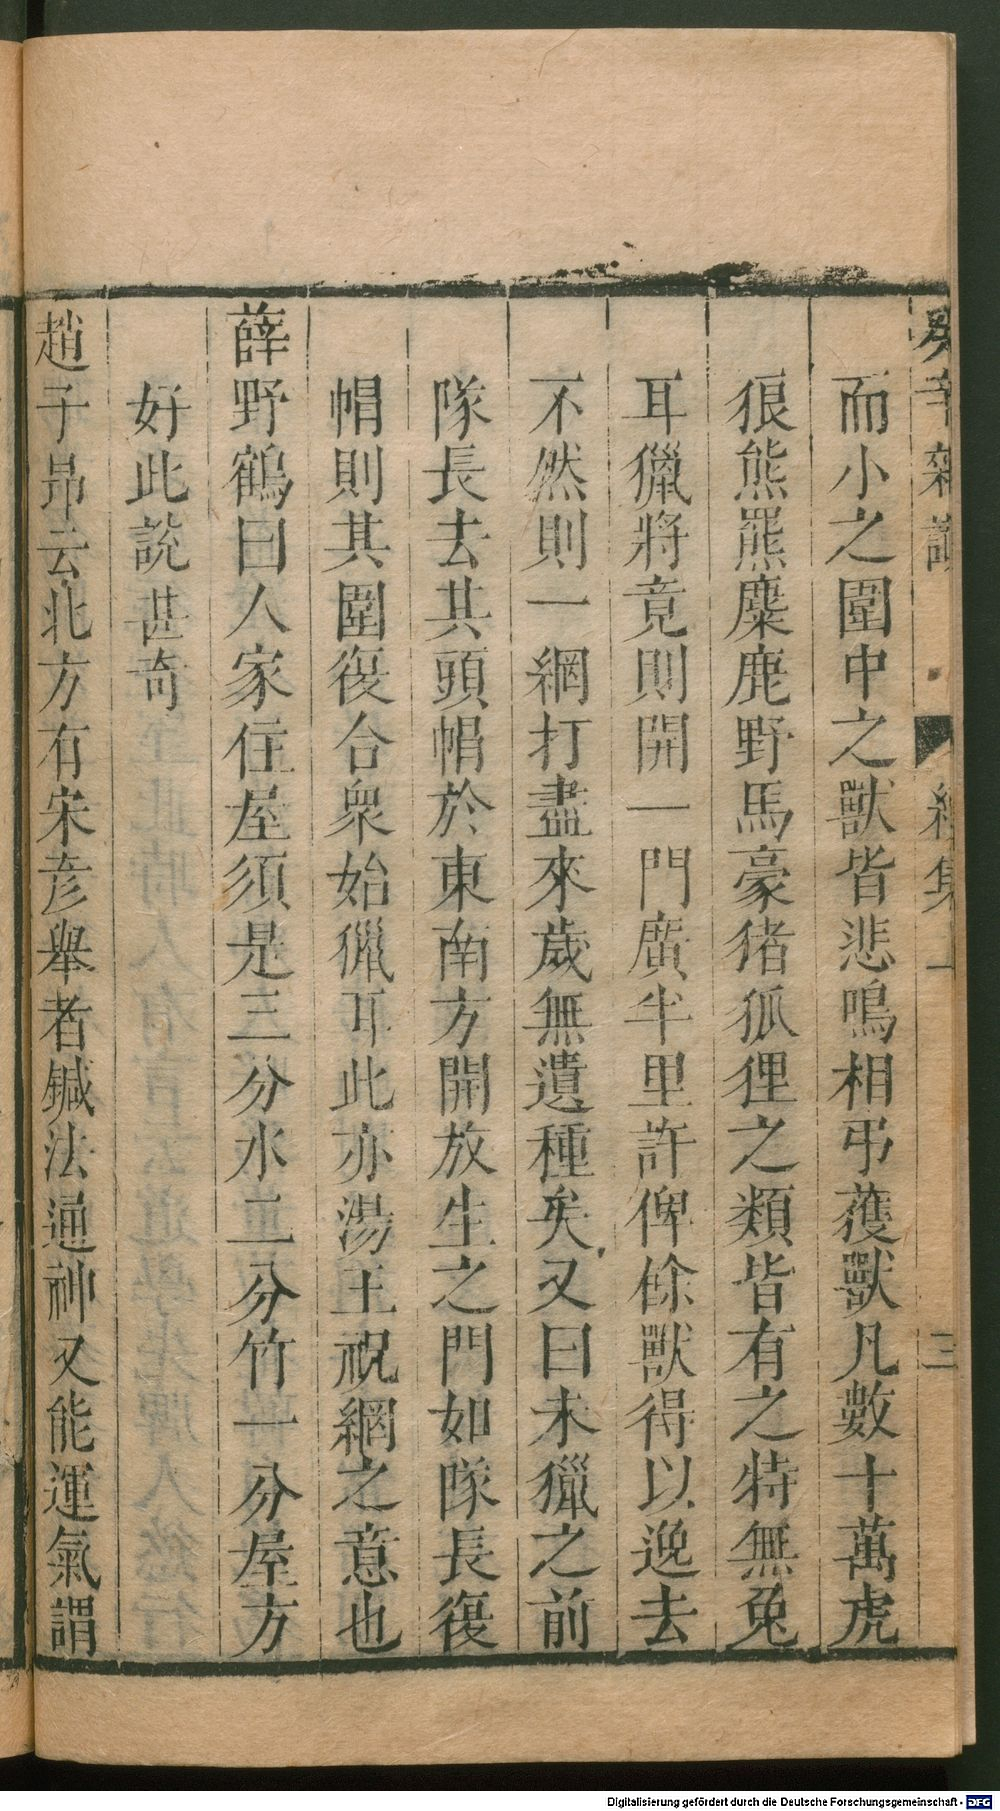 癸辛雜識 續集上 三
而小之圍中之獸皆悲鳴相弔獲獸凡數十萬虎
狼熊羆麋鹿野馬豪猪狐狸之類皆有之特無兔
耳獵將竟則開一門廣半里許俾餘獸得以逸去
不然則一網打盡來歲無遺種矣又曰未獵之前
隊長去其頭帽於東南方開放生之門如隊長復
帽則其圍復合衆始獵耳此亦湯王祝網之意也
薛野鶴曰人家住屋須是三分水二分竹一分屋方
好此說甚奇
趙子昂云北方有宋彦舉者鍼法通神又能運氣謂
Digitalisierung gefördert durch die Deutsche Forschungsgemeinschaft - DFG